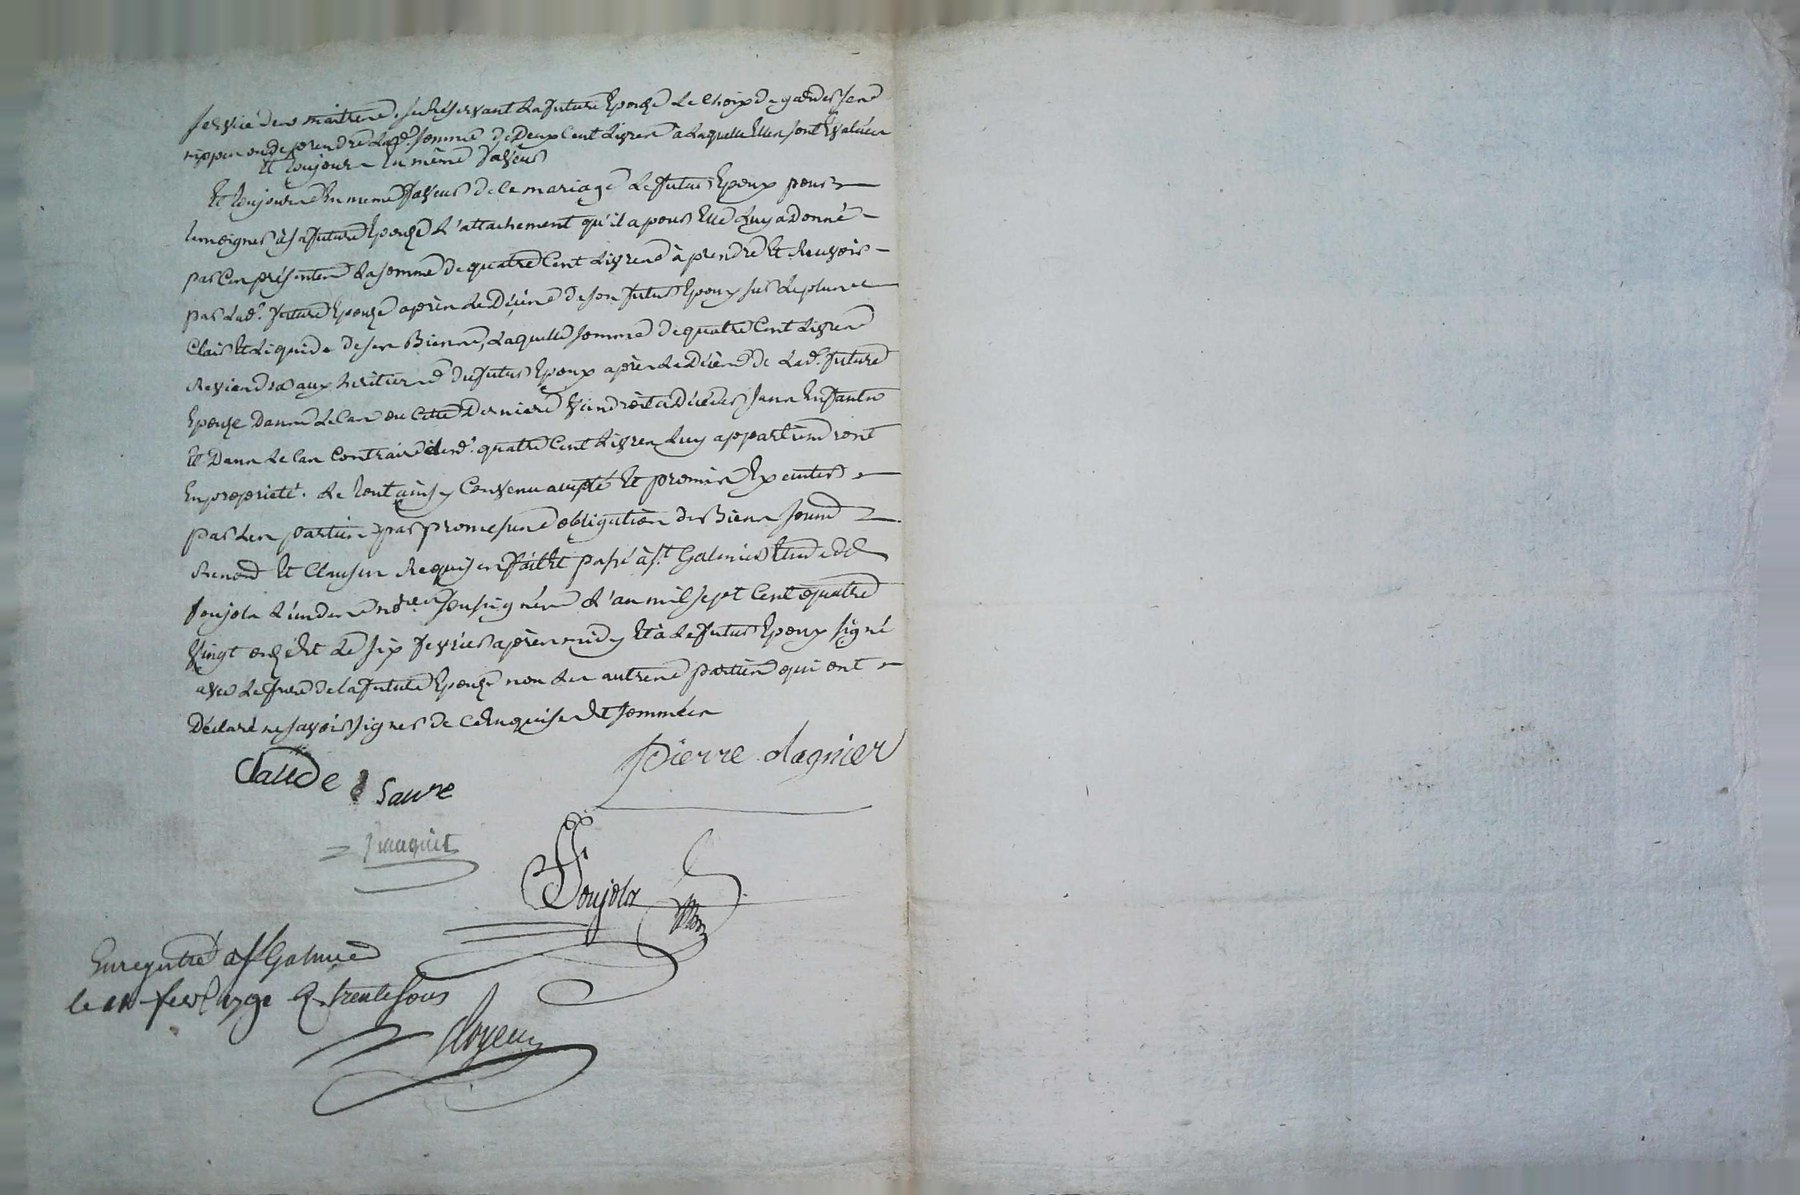 service de ses maitres, se Réservant la future Epouse le choix de garder ses
nippes ou de prendre lad.e somme de Deux Cent livres a laquelle Elles sont Evaluées
Et toujours En même faveur
Et toujours En meme faveur de ce mariage le futur Epoux pour
temoigner à sa future Epouse l'attachement qu'il a pour Elle luy a donné
par Ces présentes la somme de quatre Cent livres à prendre Et Recevoir
par lad.e future Epouse après le Décès de son futur Epoux sur le plus
Clair Et liquide de ses Biens, laquelle somme de quatre Cent livres
Reviendra aux heritiers du futur Epoux après le Décès de lad.e future
Epouse Dans le Cas ou Cette Derniere Viendroit a Décéder sans Enfants
Et Dans le Cas Contraire lesd. quatre Cent livres luy appartiendront
En proprieté. le tout ainsy Convenu accepté Et promis Executer
par les parties par promesse obligation de Biens soumis
Renond Et Clauses Requises fait Et passé à St Galmier Etude de
Poujola l'un des no.res soussignés l'an mil sept Cent quatre
Vingt onze Et le six fevrier après midy Et a le futur Epoux signé
avec le frere de la future Epouse non les autres parties qui ont
Déclaré ne savoir signer de Ce Enquises Et sommées
Claude Saure
Pierre Lagnier
Poujola
Enregistré a St Galmier
le fevr. 1791 R. trente sous